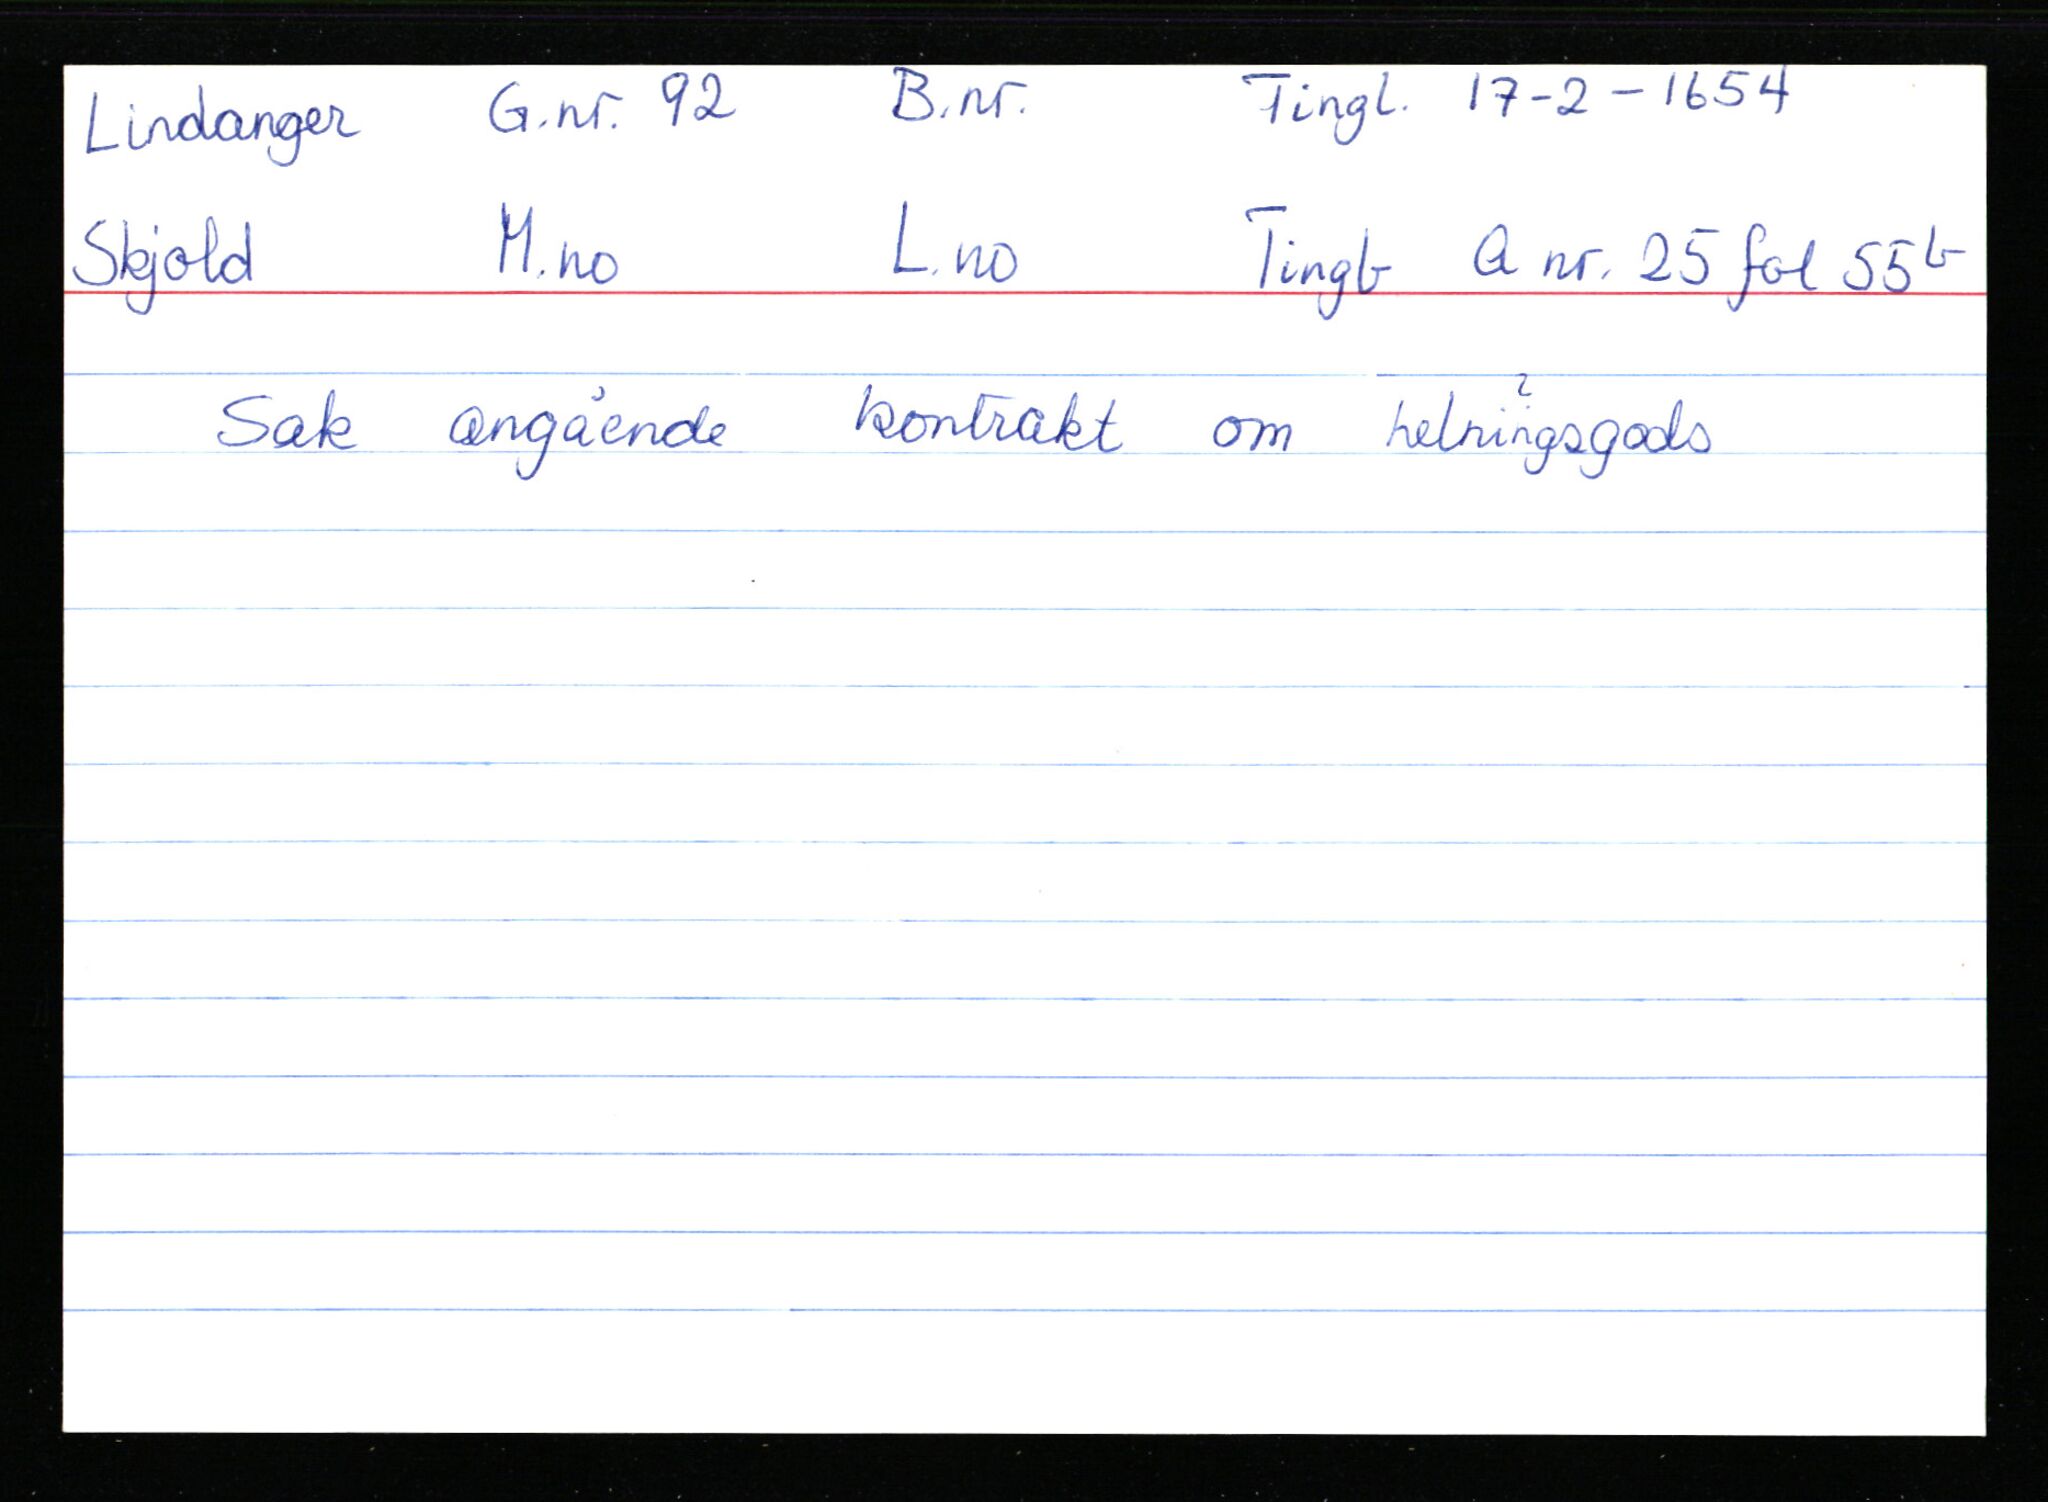 Lindanger G.nr. 92 B.nr. Tingl. 17-2-1654
Skjold M.no L.no Tingb A nr. 25 fol 55b
?
Sak angående kontrakt om helningsgods